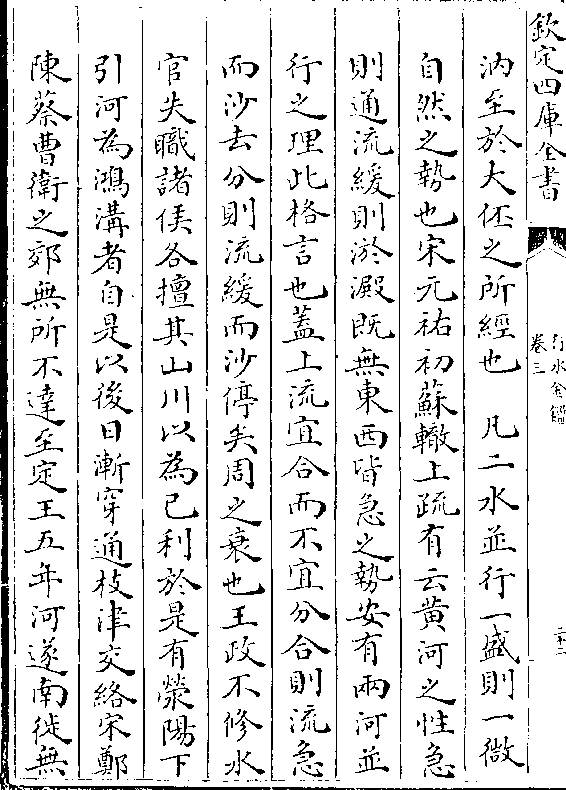 欽定四庫全書
行水金鑑
卷三
二十二
汭至於大伾之所經也　凡二水並行一盛則一微
自然之勢也宋元祐初蘇轍上疏有云黄河之性急
則通流緩則淤澱既無東西皆急之勢安有兩河並
行之理此格言也蓋上流宜合而不宜分合則流急
而沙去分則流緩而沙停矣周之衰也王政不修水
官失職諸侯各擅其山川以為已利於是有滎陽下
引河為鴻溝者自是以後日漸穿通枝津交絡宋鄭
陳蔡曹衛之郊無所不達至定王五年河遂南徙無